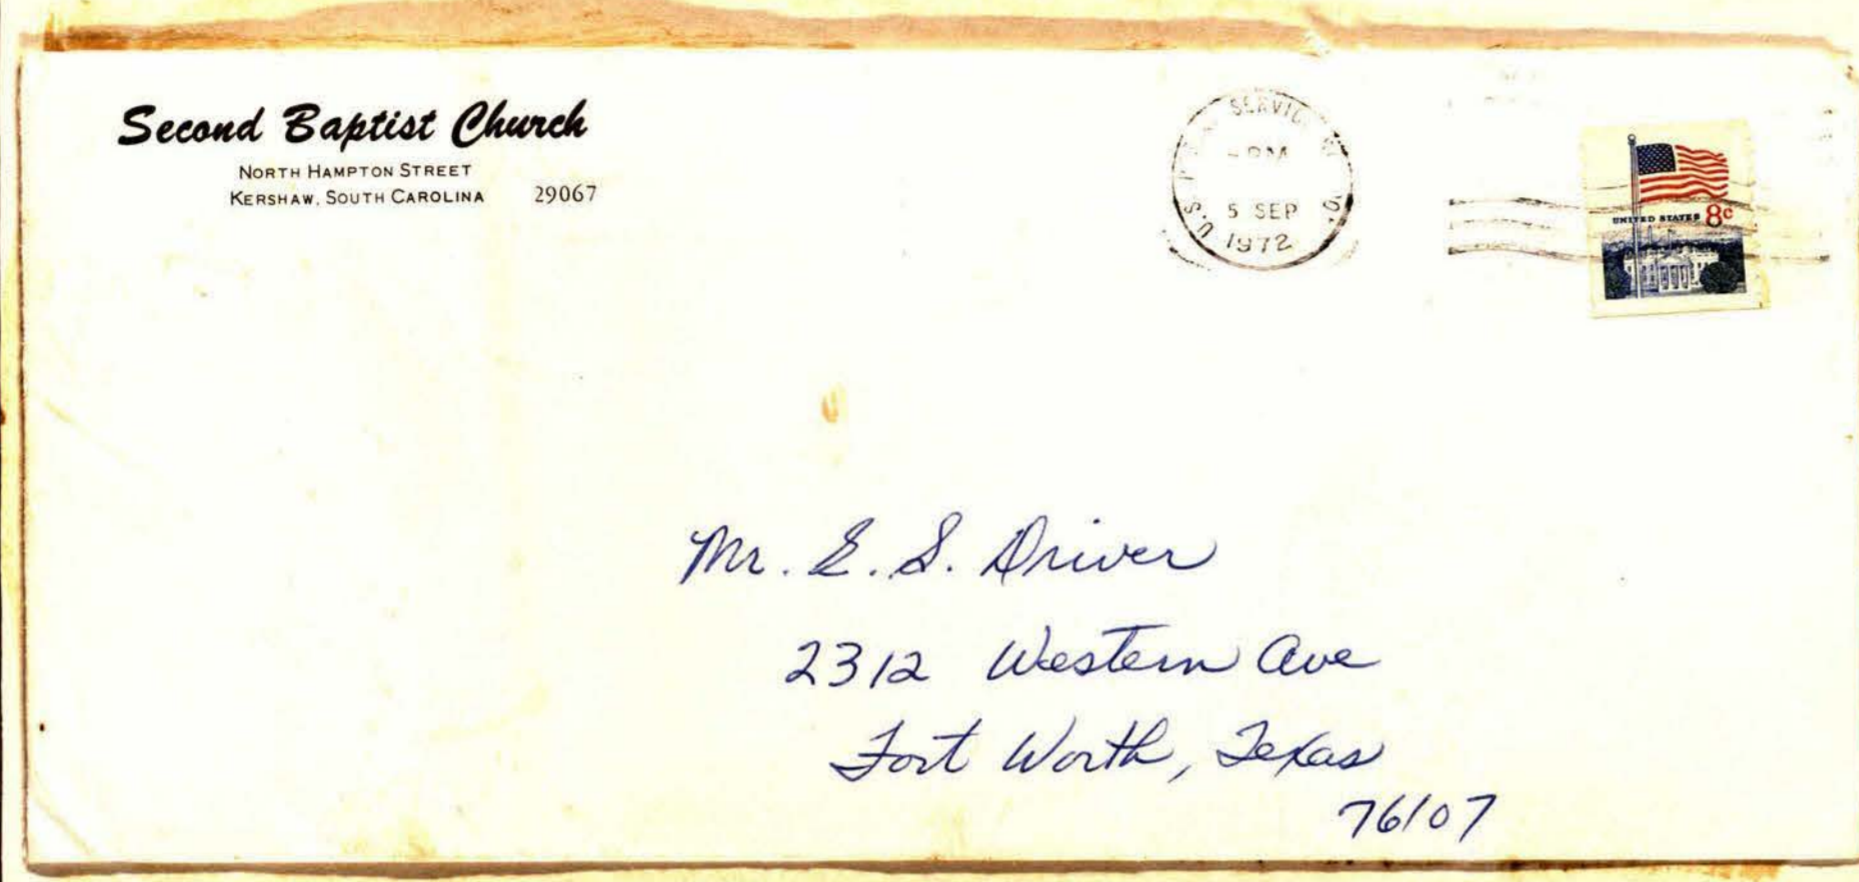 Second Baptist Church
NORTH HAMPTON STREET
KERSHAW, SOUTH CAROLINA 29067
SERVICE
PM
5 SEP
1972
U.S.
UNITED STATES 8c
Mr. E. S. Driver
2312 Western Ave
Fort Worth, Texas
76107